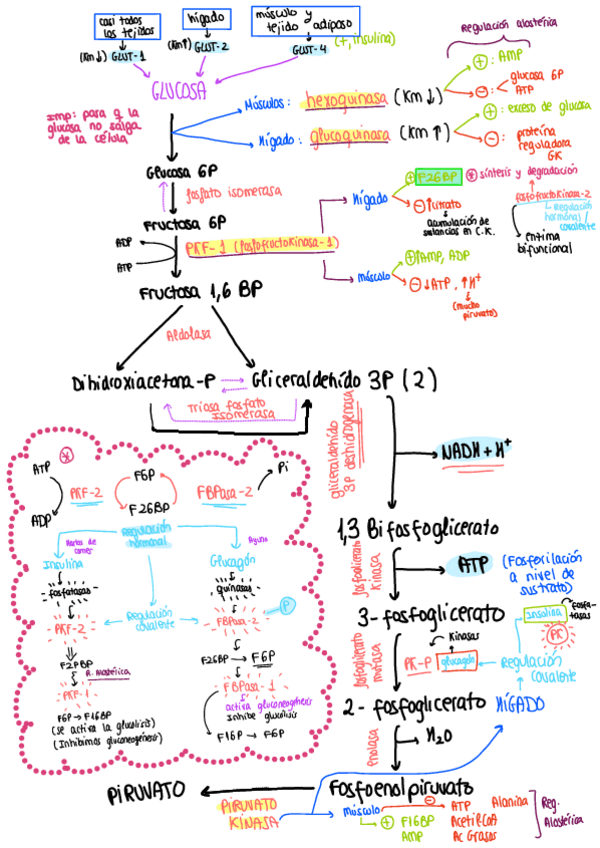 casi todos los tejidos
hígado
músculo y tejido adiposo
(Km↓) GLUT-1
(Km↑) GLUT-2
GLUT-4 (+, insulina)
Regulación alostérica
GLUCOSA
Imp: para q la
glucosa no salga
de la célula
Músculos: hexoquinasa (Km↓)
+ : AMP
- : glucosa 6P
ATP
Hígado: glucoquinasa (Km↑)
+ : exceso de glucosa
- : proteína
reguladora
GK
Glucosa 6P
fosfato isomerasa
Fructosa 6P
ADP
ATP
PKF-1 (fosfofructokinasa-1)
Hígado
+ F26BP * síntesis y degradación
- ↑citrato
→ acumulación de
sustancias en C.K.
fosfofructokinasa-2
Regulación
hormonal/
covalente
enzima
bifuncional
músculo
+ ↑AMP, ADP
- ↓ATP, ↑H+
(mucho
piruvato)
Fructosa 1,6 BP
Aldolasa
Dihidroxiacetona-P
Gliceraldehído 3P (2)
Triosa fosfato
isomerasa
gliceraldehído
3P deshidrogenasa
NADH + H+
*
ATP
ADP
PKF-2
F6P
F26BP
FBPasa-2
Pi
Regulación
hormonal
Hartos de
comer
Ayuno
Insulina
Glucagón
fosfatasas
quinasas
PKF-2
Regulación
covalente
FBPasa-2
P
F2PBP
R. Alostérica
PKF-1
F6P → F16BP
(se activa la glucólisis)
(Inhibimos gluconeogénesis)
F26BP → F6P
FBPasa-1
activa gluconeogénesis
inhibe glucólisis
F16P → F6P
1,3 Bifosfoglicerato
fosfoglicerato
kinasa
ATP
(Fosforilación
a nivel de
sustrato)
3-fosfoglicerato
fosfoglicerato
mutasa
Kinasas
PK-P
glucagón
Insulina
fosfa-
tasas
PK
Regulación
covalente
2-fosfoglicerato
HÍGADO
enolasa
H2O
PIRUVATO
Fosfoenolpiruvato
PIRUVATO
KINASA
músculo
- ATP Alanina
Acetil CoA
Ac Grasos
+ F16BP
AMP
Reg.
Alostérica